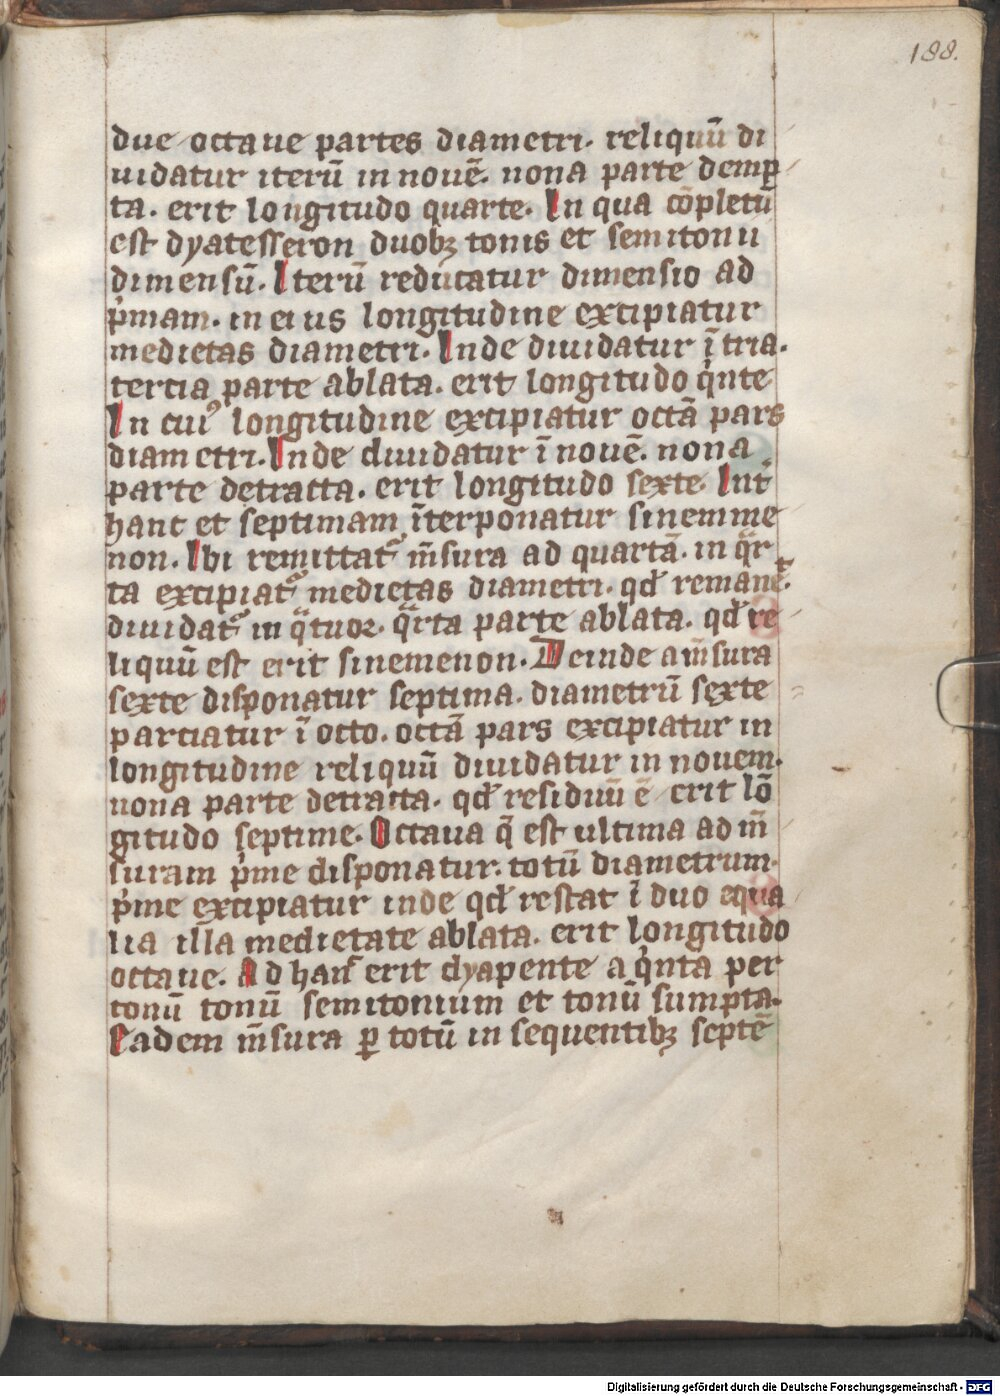 188.
due octaue partes diametri. reliquū di
uidatur iterū in nouē. nona parte demp
ta. erit longitudo quarte. In qua cōpletū
est dyatesseron duobꝫ tonis et semitonii
dimensū. Iterū reducatur dimensio ad
p̍mam. in eius longitudine excipiatur
medietas diametri. Inde diuidatur ī tria.
tercia parte ablata. erit longitudo q̍nte
In cuiꝰ longitudine excipiatur octā pars
diametri. Inde diuidatur ī nouē. nona
parte detracta. erit longitudo sexte. Int̄
hanc et septimam īterponatur sinemme
non. Ibi remittat᷑ m̄sura ad quartā. in qͣr
ta excipiat᷑ medietas diametri. qd̄ remanet.
diuidat᷑ in qͣtuor. qͣrta parte ablata. qd̄ re
liquū est erit sinemenon. Deinde a m̄sura
sexte disponatur septima. diametrū sexte
parciatur ī octo. octā pars excipiatur in
longitudine reliquū diuidatur in nouem.
nona parte detracta. qd̄ residuū ē erit lō
gitudo septime. Octaua q̄ est ultima ad m̄
suram p̍me disponatur. totū diametrum
p̍me excipiatur inde qd̄ restat ī duo equa
lia illa medietate ablata. erit longitudo
octaue. Ad hanc erit dyapente a q̍nta per
tonū tonū semitonium et tonū sumpta.
Eadem m̄sura ꝑ totū in sequentibꝫ septē
Digitalisierung gefördert durch die Deutsche Forschungsgemeinschaft - DFG